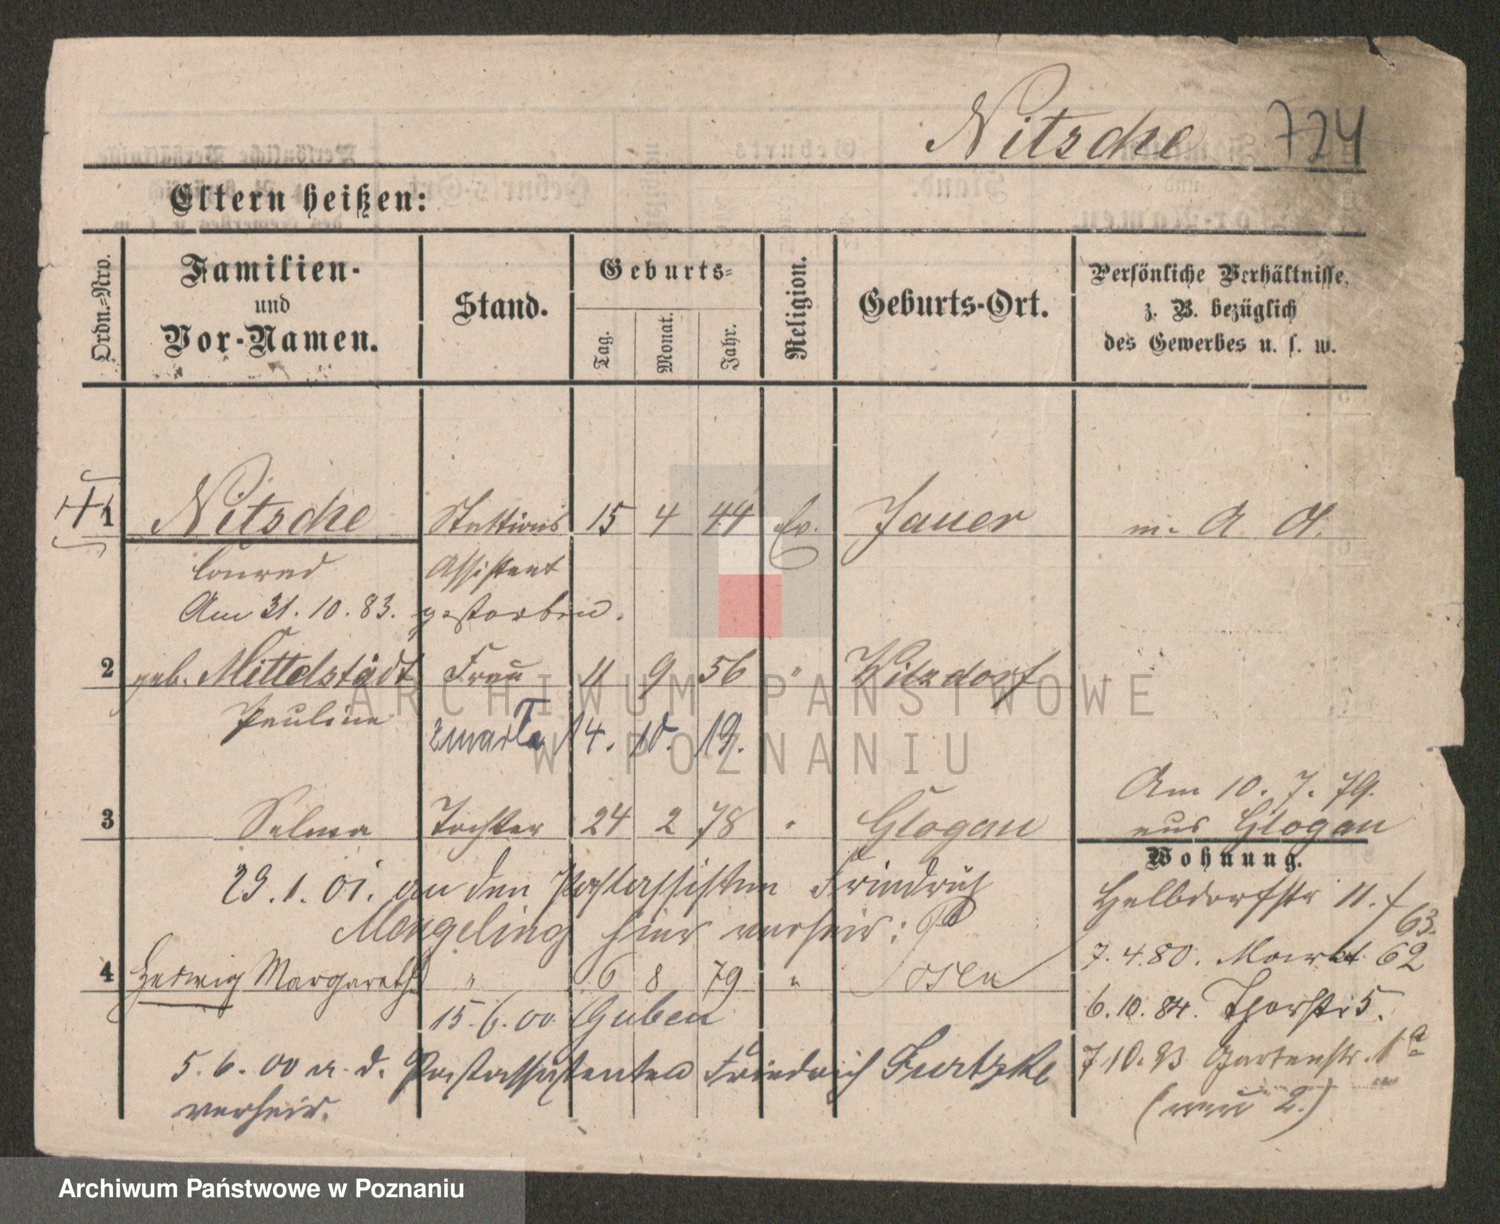 Nitsche 724
Eltern heißen:
Ordn.-Nro.
Familien-
und
Vor-Namen.
Stand.
Geburts-
Tag.
Monat.
Jahr.
Religion.
Geburts-Ort.
Persönliche Verhältnisse,
z. B. bezüglich
des Gewerbes u. s. w.
1 Nitsche Stations 15 4 44 Ev. Jauer m. A. A.
Conrad Assistent
Am 31. 10. 83. gestorben.
2 geb. Mittelstädt Frau 11 9 56 " Wilxdorf
Pauline
zmarła 14. 10. 19.
Am 10. 7. 79.
3 Selma Tochter 24 2 78 " Glogau aus Glogau
Wohnung.
23. 1. 01. an den Postassistenten Friedrich
Halbdorfstr 11. / 63.
Mengeling hier verheir:
7. 4. 80. Markt 62
4 Hedwig Margarethe " 6 8 79 " Posen
6. 10. 84. Thorstr 5.
15. 6. 00 Guben
5. 6. 00 a. d. Postassistenten Friedrich
7 10. 93 Gartenstr. 1a
verheir.
(neu 2.)
ARCHIWUM PAŃSTWOWE
W POZNANIU
Archiwum Państwowe w Poznaniu